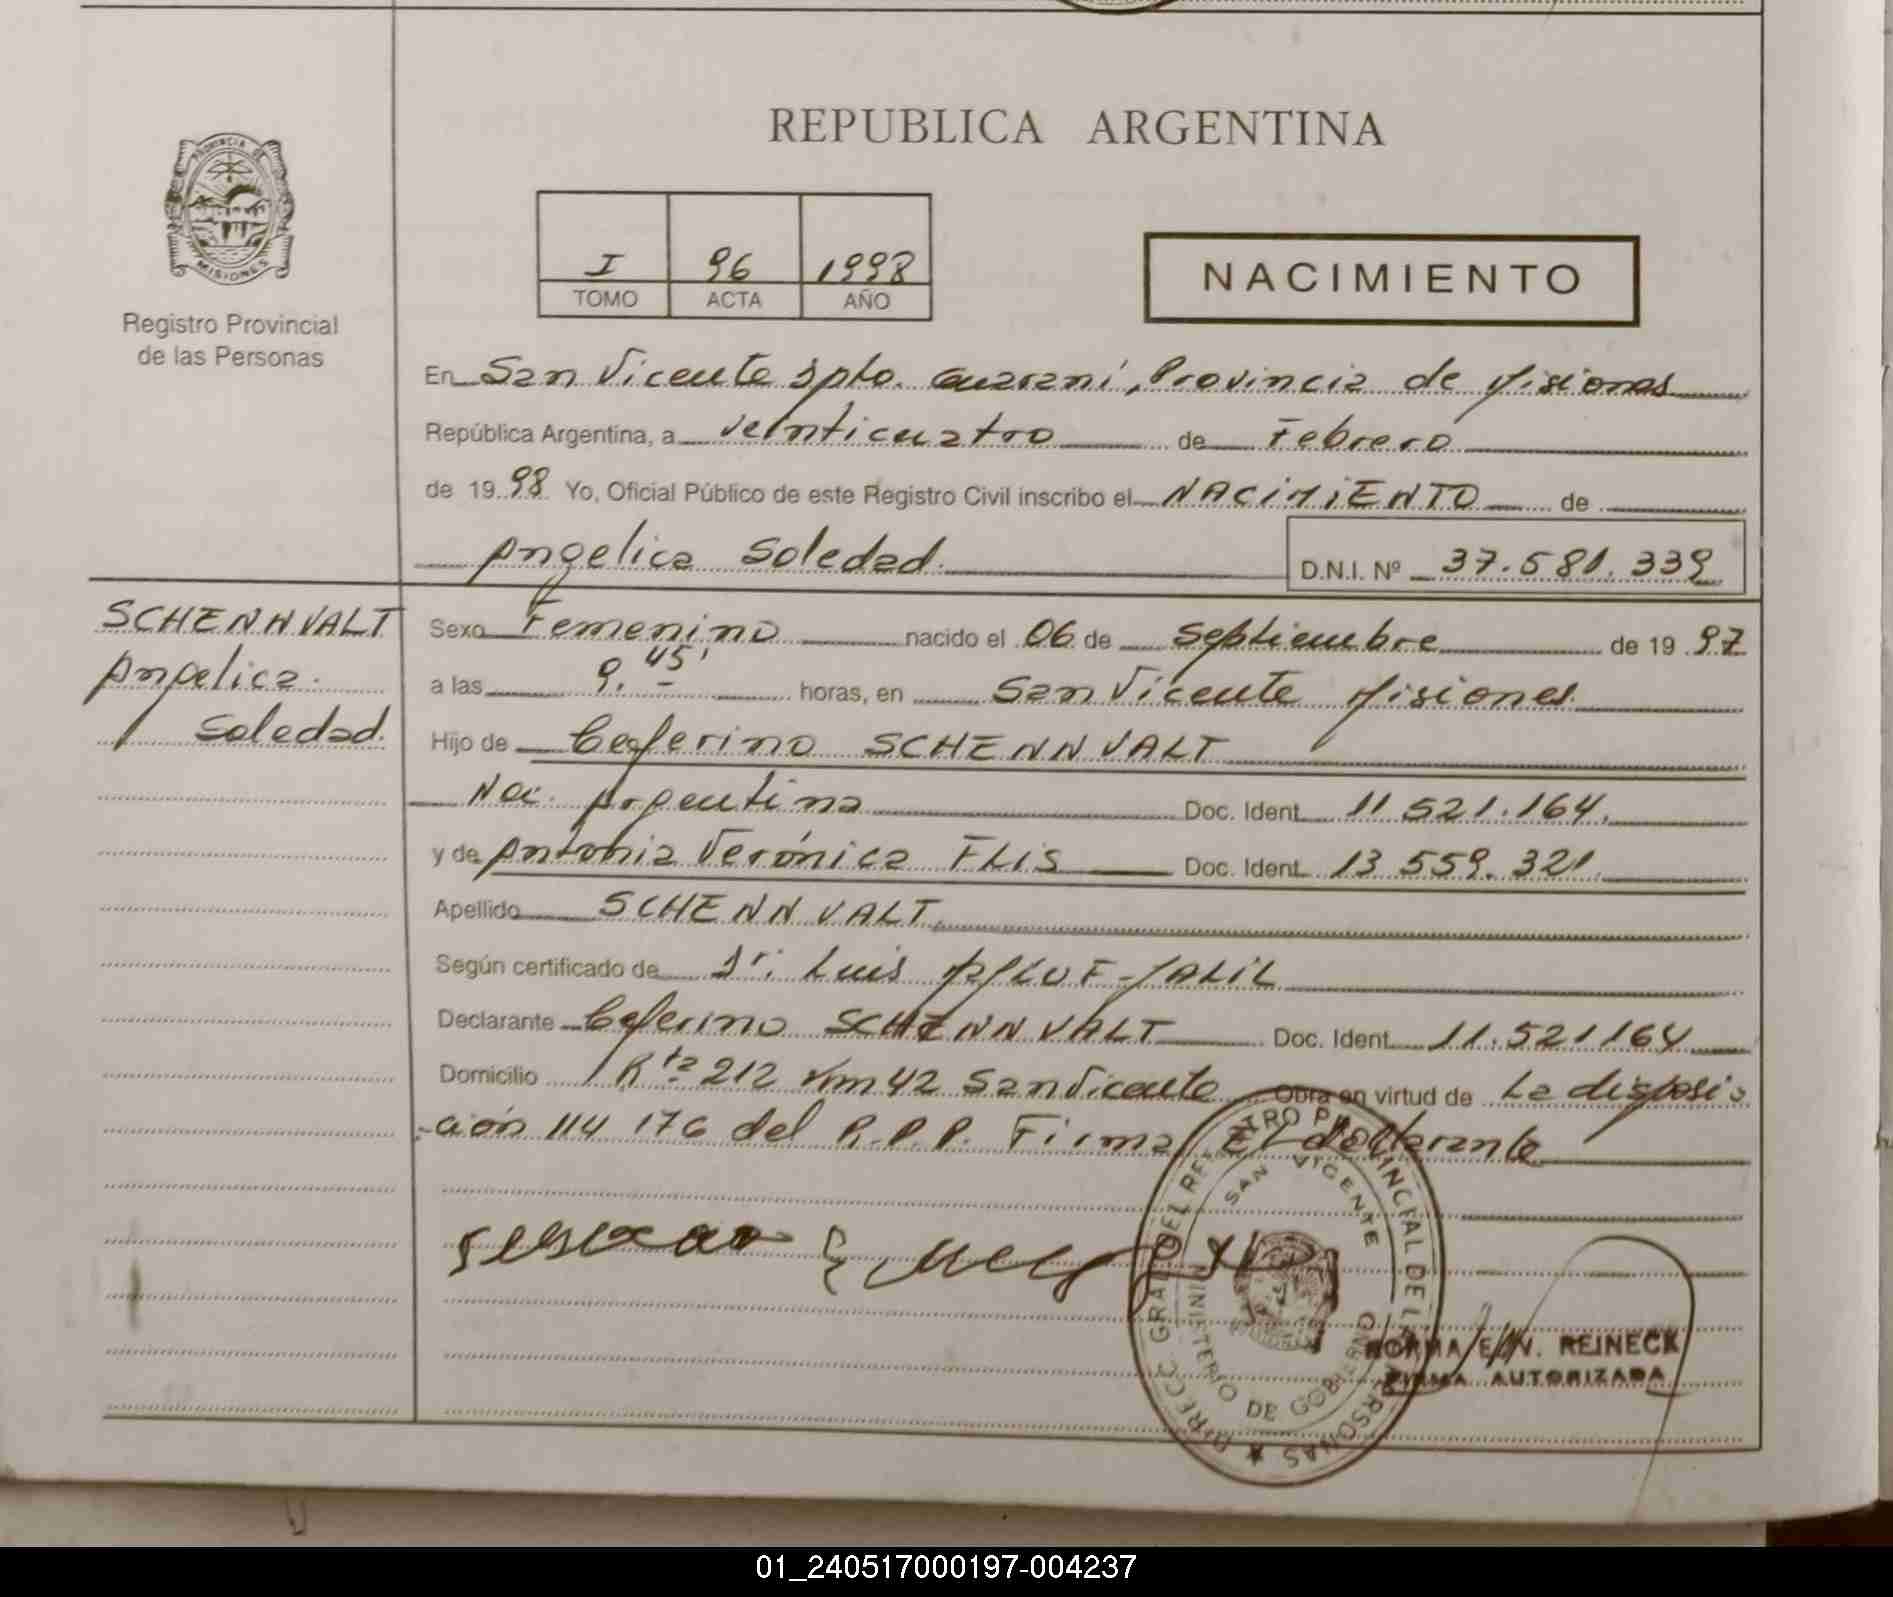 REPUBLICA ARGENTINA
PROVINCIA DE
MISIONES
Registro Provincial
de las Personas
I 96 1998
TOMO ACTA AÑO
NACIMIENTO
En San Vicente Dpto. Guaraní, Provincia de Misiones
República Argentina, a veinticuatro de Febrero
de 1998 Yo, Oficial Público de este Registro Civil inscribo el NACIMIENTO de
Angelica Soledad. D.N.I. Nº 37.581.339
SCHENNVALT
Angelica.
Soledad.
Sexo Femenino nacido el 06 de Septiembre de 1997
a las 9.45' horas, en San Vicente Misiones.
Hijo de Ceferino SCHENNVALT
Nac. Argentina Doc. Ident. 11.521.164.
y de Antonia Verónica FLIS Doc. Ident. 13.559.321.
Apellido SCHENNVALT
Según certificado de Dr. Luis JALIL
Declarante Ceferino SCHENNVALT Doc. Ident. 11.521164
Domicilio Rta 212 Km 42 San Vicente Obra en virtud de La disposi
-ción 114 176 del R.P.P. Firma El declarante
DIRECC. GRAL. DEL REGISTRO PROVINCIAL DE LAS PERSONAS
SAN VICENTE
MINISTERIO DE GOBIERNO
NORMA E. V. REINECK
FIRMA AUTORIZADA
01_240517000197-004237